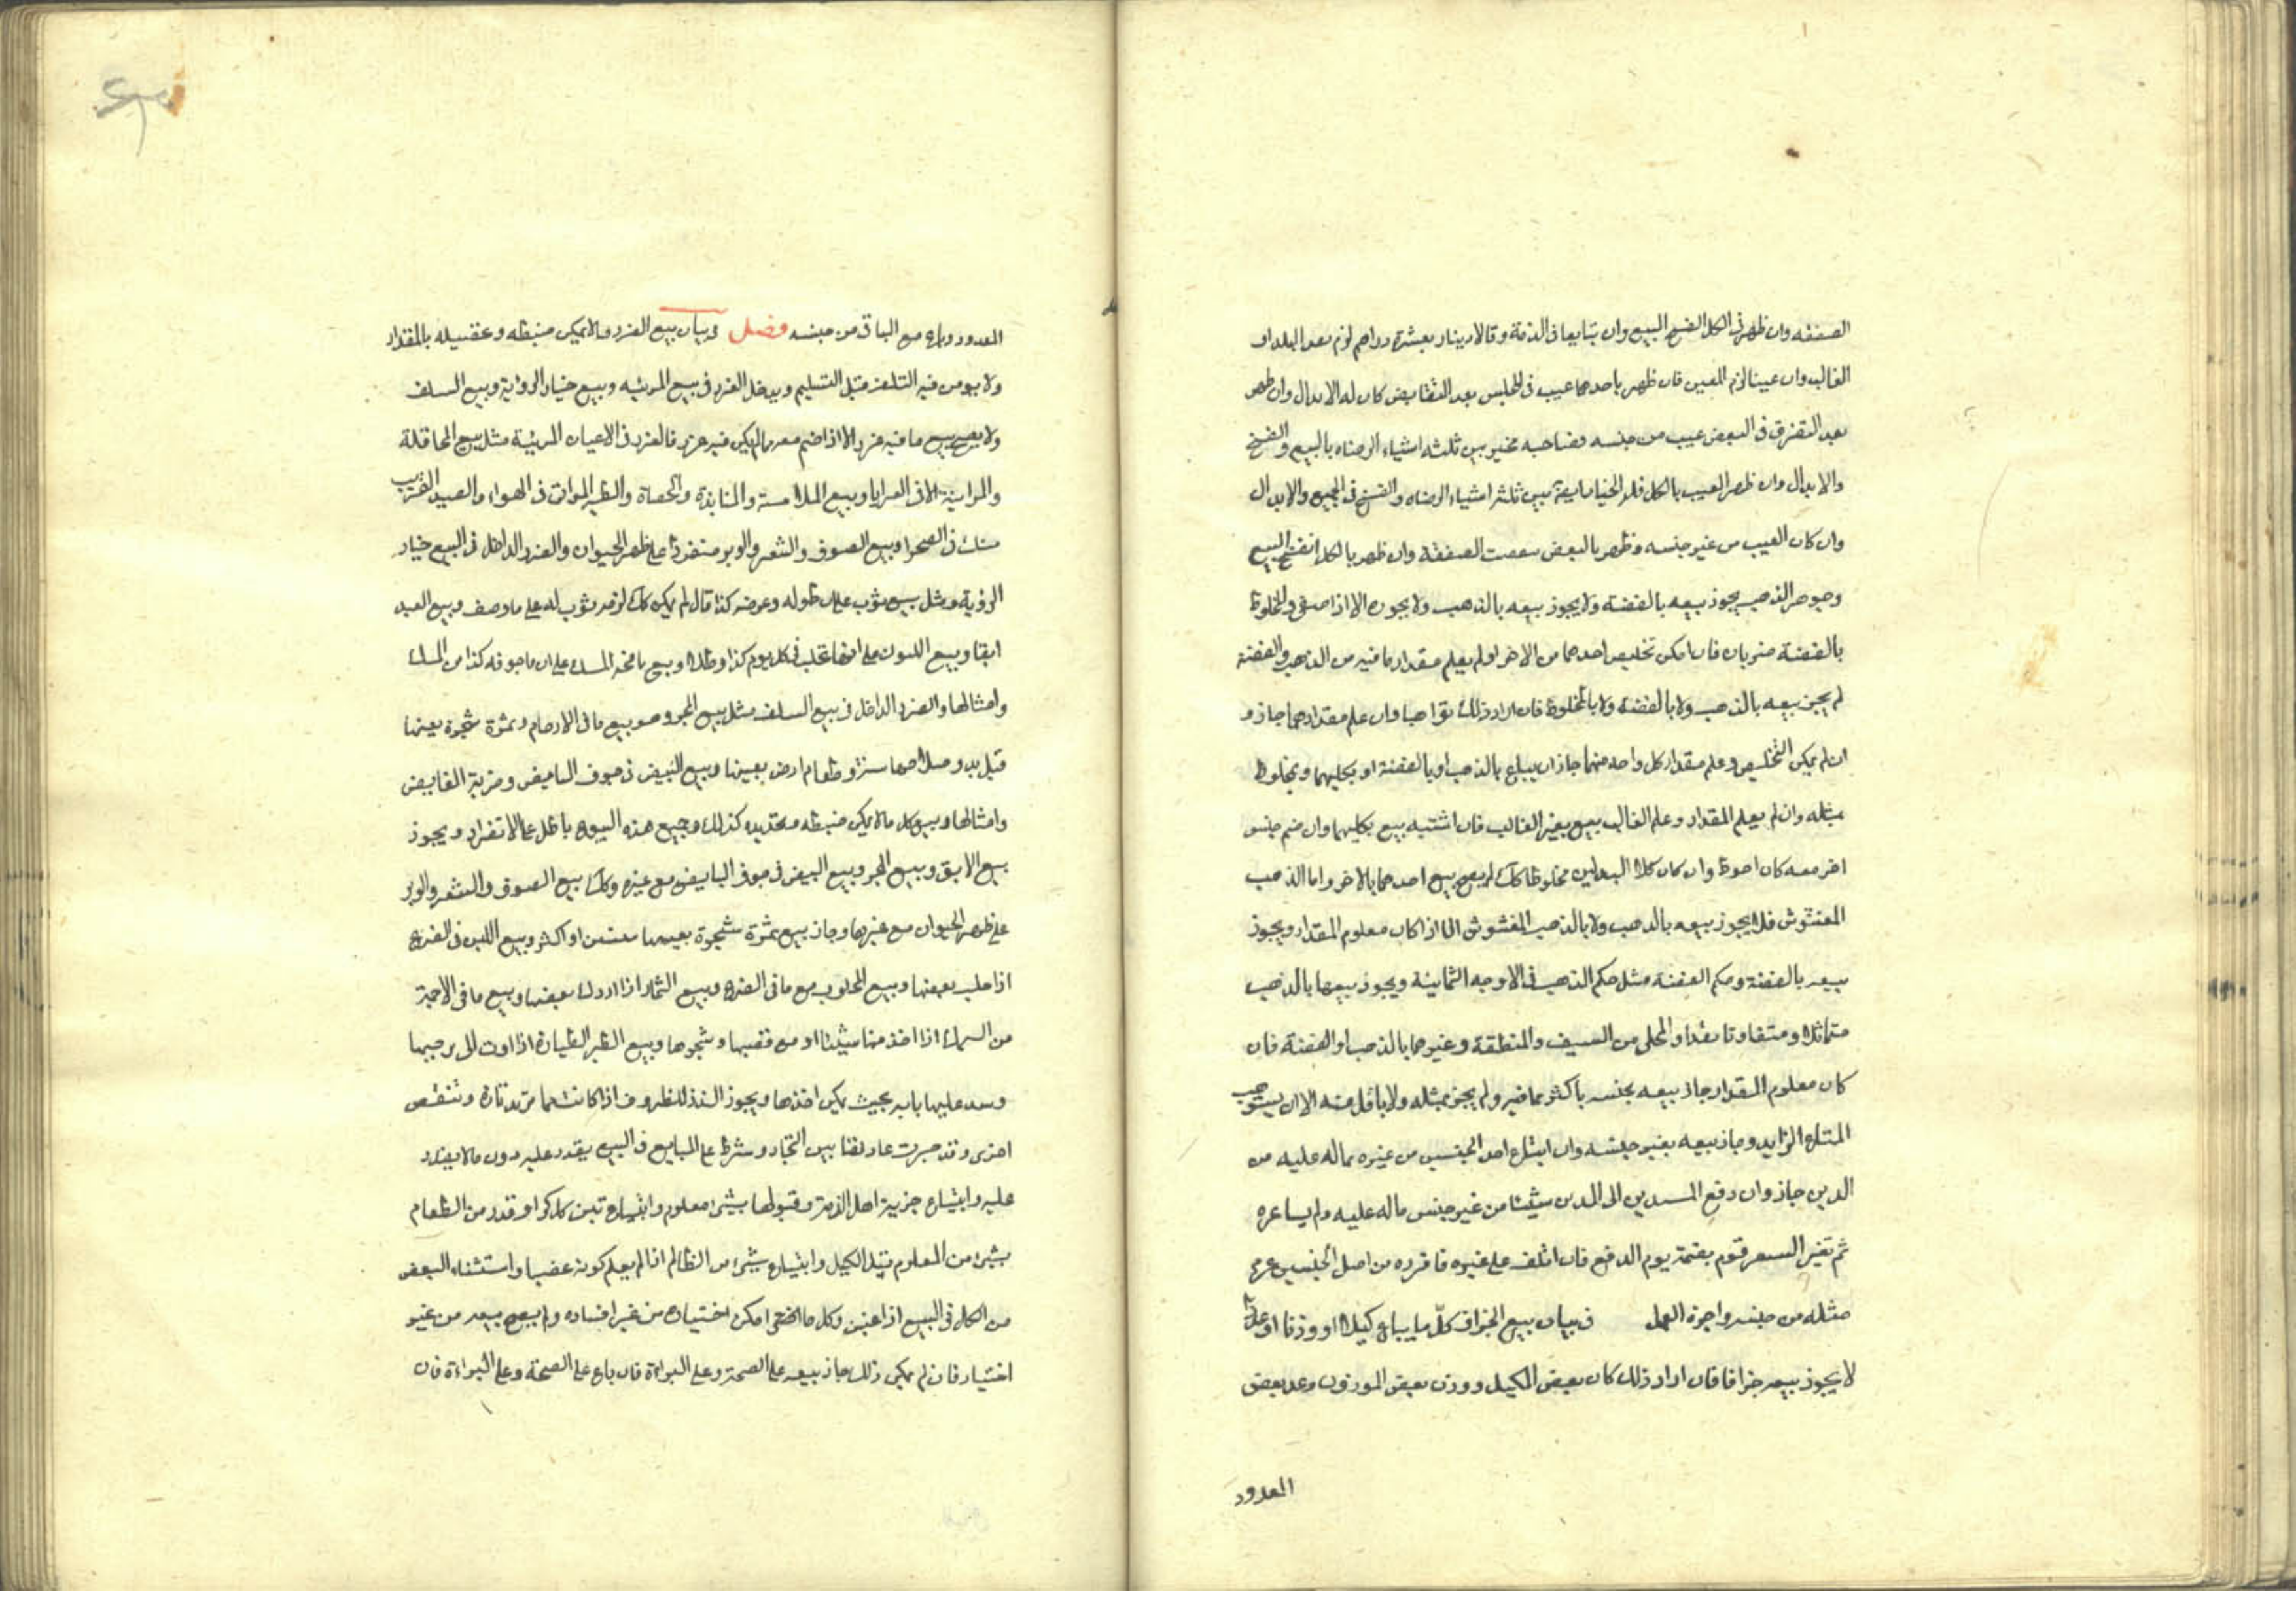 الصفقه وان ظهر فى الكل انفسخ البيع وان تبايعا فى الذمة وقالا دينار بعشرة دراهم لزم نقد البلد او
الغالب وان عينا لزم المعين فان ظهر باحدهما عيب فى المجلس بعد التقابض كان له الابدال وان ظهر
بعد التفرق فى البعض عيب من جنسه فصاحبه مخير بين ثلثه اشياء الرضاء بالبيع والفسخ
والابدال وان ظهر العيب بالكل فله الخيار ايضا بين ثلثه اشياء الرضاء والفسخ فى الجميع والابدال
وان كان العيب من غير جنسه وظهر بالبعض الصفقة وان ظهر بالكل انفسخ البيع
وجوهر الذهب يجوز بيعه بالفضة ولا يجوز بيعه بالذهب ولا يجوز الا اذا صفى والمخلوط
بالفضة ضربان فان امكن تخليص احدهما من الاخر او لم يعلم مقدار ما فيه من الذهب والفضة
لم يجز بيعه بالذهب ولا بالفضة ولا بالمخلوط فان اراد ذلك تواهبا وان علم مقدارهما جاز و
ان لم يمكن التخليص وعلم مقدار كل واحد منهما جاز ان يباع بالذهب او بالفضة او بكليهما وبمخلوط
مثله وان لم يعلم المقدار وعلم الغالب بيع بغير الغالب فان اشتبه بيع بكليهما وان ضم جنس
اخر معه كان احوط وان كان كلا البدلين مخلوطا كذلك لم يصح بيع احدهما بالاخر واما الذهب
المغشوش فلا يجوز بيعه بالذهب ولا بالذهب المغشوش الا اذا كان معلوم المقدار ويجوز
بيعه بالفضة وحكم الفضة مثل حكم الذهب فى الاوجه الثمانية ويجوز بيعها بالذهب
متماثلا ومتفاوتا نقدا والمحلى من السيف والمنطقة وغيرهما بالذهب او الفضة فان
كان معلوم المقدار جاز بيعه بجنسه باكثر مما فيه ولم يجز بمثله ولا باقل منه الا ان يستوهب
المبتاع الزايد وجاز بيعه بغير جنسه وان ابتاع احد الجنسين من غيره بماله عليه من
الدين جاز وان دفع المدين الى المدين شيئا من غير جنس ماله عليه ولم يساعره
ثم تغير السعر قوم بقيمة يوم الدفع فان اتلف على غيره من احد الجنسين غرم
مثله من جنسه واجرة العمل فى بيان بيع الجزاف كلّ ما يباع كيلا او وزنا او عدا
لا يجوز بيعه جزافا فان اراد ذلك كان بعض المكيل ووزن بعض الموزون وعد بعض
المعدود
المعدود وباع مع الباقى من جنسه فصل فى بيان بيع الغرر ما لا يمكن ضبطه و بالمقدار
ولا يومن فيه التلف قبل التسليم ويدخل الغرر فى بيع المرئيه وبيع خيار الرواية وبيع السلف
ولا يصح بيع ما فيه غرر الا اذا ضم معه ما لم يكن فيه غرر فالغرر فى الاعيان المرئية مثل بيع المحاقلة
والمزابنة الا فى العرايا وبيع الملامسة والمنابذة والحصاة والطير المواقت فى الهواء والصيد
فى الصحرا وبيع الصوف والشعر والوبر منفردا على ظهر الحيوان والغرر الداخل فى البيع خيار
الرؤية مثل بيع ثوب على ان طوله وعرضه كذا فان لم يكن كذلك لزمه ثوب له على ما وصف وبيع العبد
ابقا وبيع اللبون على انها تحلب فى كل يوم كذا وطلا وبيع نافجة المسك على ان ما جوفه كذا من المسك
وامثالها والغرر الداخل فى بيع السلف مثل بيع المجر وهو بيع ما فى الارحام وثمرة شجرة بعينها
قبل بدو صلاحها سنة وطعام ارض بعينها وبيع البيض فى جوف البايض وضربة القابض
وامثالها وبيع كل ما لا يمكن ضبطه كذلك وجميع هذه البيوع باطل على الانفراد ويجوز
بيع الابق وبيع المجر وبيع البيض فى جوف البايض مع غيره وكذلك بيع الصوف والشعر والوبر
على ظهر الحيوان مع غيرها وجاز بيع ثمرة شجرة بعينها سنتين او اكثر وبيع اللبن فى الضرع
اذا حلب بعضها وبيع المحلوب مع ما فى الضرع وبيع الثمار اذا ادرك بعضها وبيع ما فى الاجمة
من السمك اذا اخذ منها شيئا او مع قصبها وشجرها وبيع الطير الطيارة اذا اوت الى برجها
وسد عليها بابه بحيث يمكن اخذها ويجوز للظروف اذا كانت مما تزيد تارة وتنقص
اخرى وقد جرت عادتنا بين التجار وشرط على المبايع فى البيع يقدر عليه دون ما لا يقدر
عليه وابتياع جزية اهل الذمة وقبولها بشئ معلوم وابتياع تبن كل كر او قدر من الطعام
بشئ من المعلوم قبل الكيل وابتياع شئ من الظالم اذا لم يعلم كونه غصبا واستثناء البعض
من الكل فى البيع اذا عين وكل ما امكن اختياره من غير افساده ولم يصح بيعه من غير
اختيار فان لم يمكن ذلك جاز بيعه على الصحة وعلى البراءة فان باع على الصحة وعلى البراءة فان